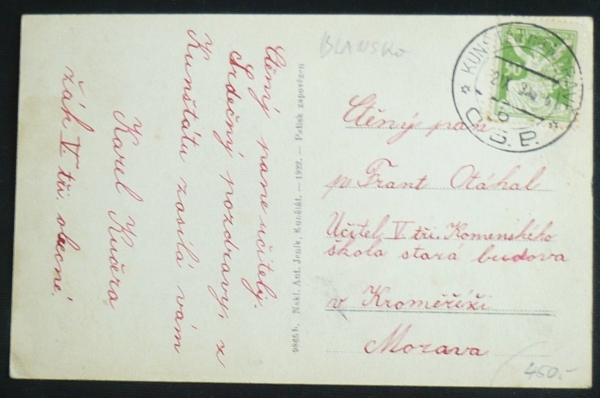 Ctěný pane učitely.
Srdečný pozdravy z
Kunštátu zasílá vám
Karel Kučera
žák V. tří. obecné.
9865 b. Nakl. Ant. Jeník, Kunštát. — 1922. — Potisk zapovězen
BLANSKO
Č.S.P.
Ctěný pán
p Frant Otáhal
Učitel V tří. Komenského
škola stara budova
v Kroměříži
Morava
450.-